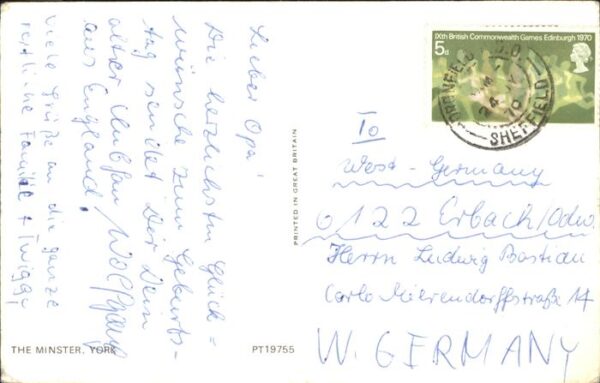 Lieber Opa!
Die herzlichsten Glück=
wünsche zum Geburts-
tag sendet Dir Dein
alter Wolfgang
aus England!
viele Grüße an die ganze
restliche Familie + Twiggy
THE MINSTER, YORK
PT19755
PRINTED IN GREAT BRITAIN
IXth British Commonwealth Games Edinburgh 1970
5d
SHEFFIELD
24
70
To
West-Germany
6122 Erbach/Odw.
Herrn Ludwig Bastian
Carlo Mierendorffstraße 14
W. GERMANY